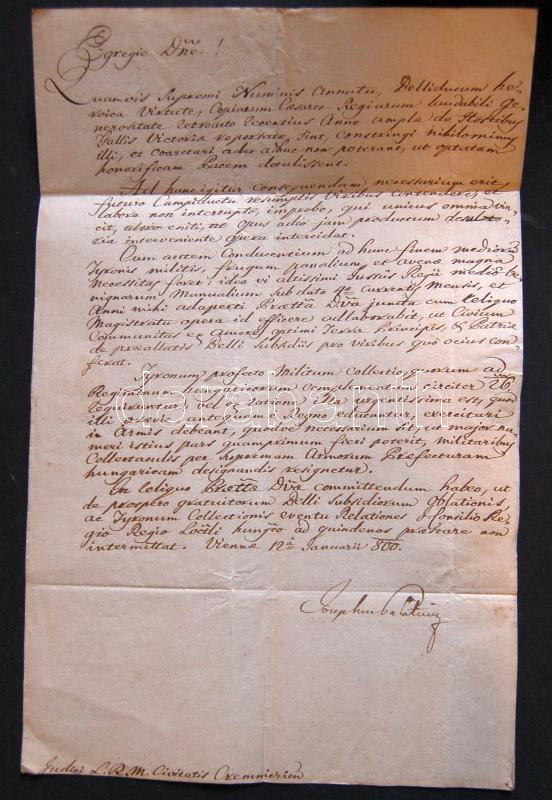 Egregie Dne!
Quamvis Supremi Numinis Annutu, Belliducum he-
roica Virtute, Copiarum Cæsareo-Regiarum laudabili ge-
nerositate retroacto recentius Anno amplæ de Hostibus
Gallis Victoriæ reportatæ sint, constringi nihilominus
illi, et coarctari adeo adhuc non poterant, ut optatam
honorificam Pacem detulissent.
Ad hanc igitur consequendam necessarium erit,
futuro Campiductu resumptis Viribus
labore non interrupto, improbo, qui unicus omnia vin-
cit, eo eniti, ne opus adeo jam productum
interveniente intercidat.
Cum autem Conducentium ad hunc finem mediorum
Tyronis militis, frugum panalium, et avenæ magna
Necessitas foret: ideo vi altissimi Jussus Regii medio be-
nignarum Manualium sub dato currentis Mensis, et
Anni mihi adaperti Prætta Dva junctu cum reliquo
Magistratu opera id efficere adlaborabit, ut Civium
Communitas Amore optimi Terræ Principis, & Patriæ
de præallatis Belli Subsidiis pro viribus quo ocius con-
ferat.
Tyronum profecto Militum Collectio, quorum ad
Regiminum hungaricorum complementum circiter 26
requiruntur vel ea ratione ita urgentissima est, quod
illi prævie antequam Regno educantur, exercitari
in Armis debeant, proinde necessarium sit, ut major nu-
meri istius pars quamprimum fieri poterit, militaribus
Collectaculis per supremam Armorum Præfecturam
hungaricam designandis resignetur.
In reliquo Prættæ Dvæ committendum habeo, ut
de prospero gratuitorum Belli subsidiorum Oblationis,
ac Tyronum Collectionis eventu Relationes Consilio Re-
gio Regio Locali hungco ad quindenas præstare non
intermittat. Viennæ 12a Januarii 800.
Josephus Palatinus
Judici L. R. M. Civitatis Cremniciensi
darabanth